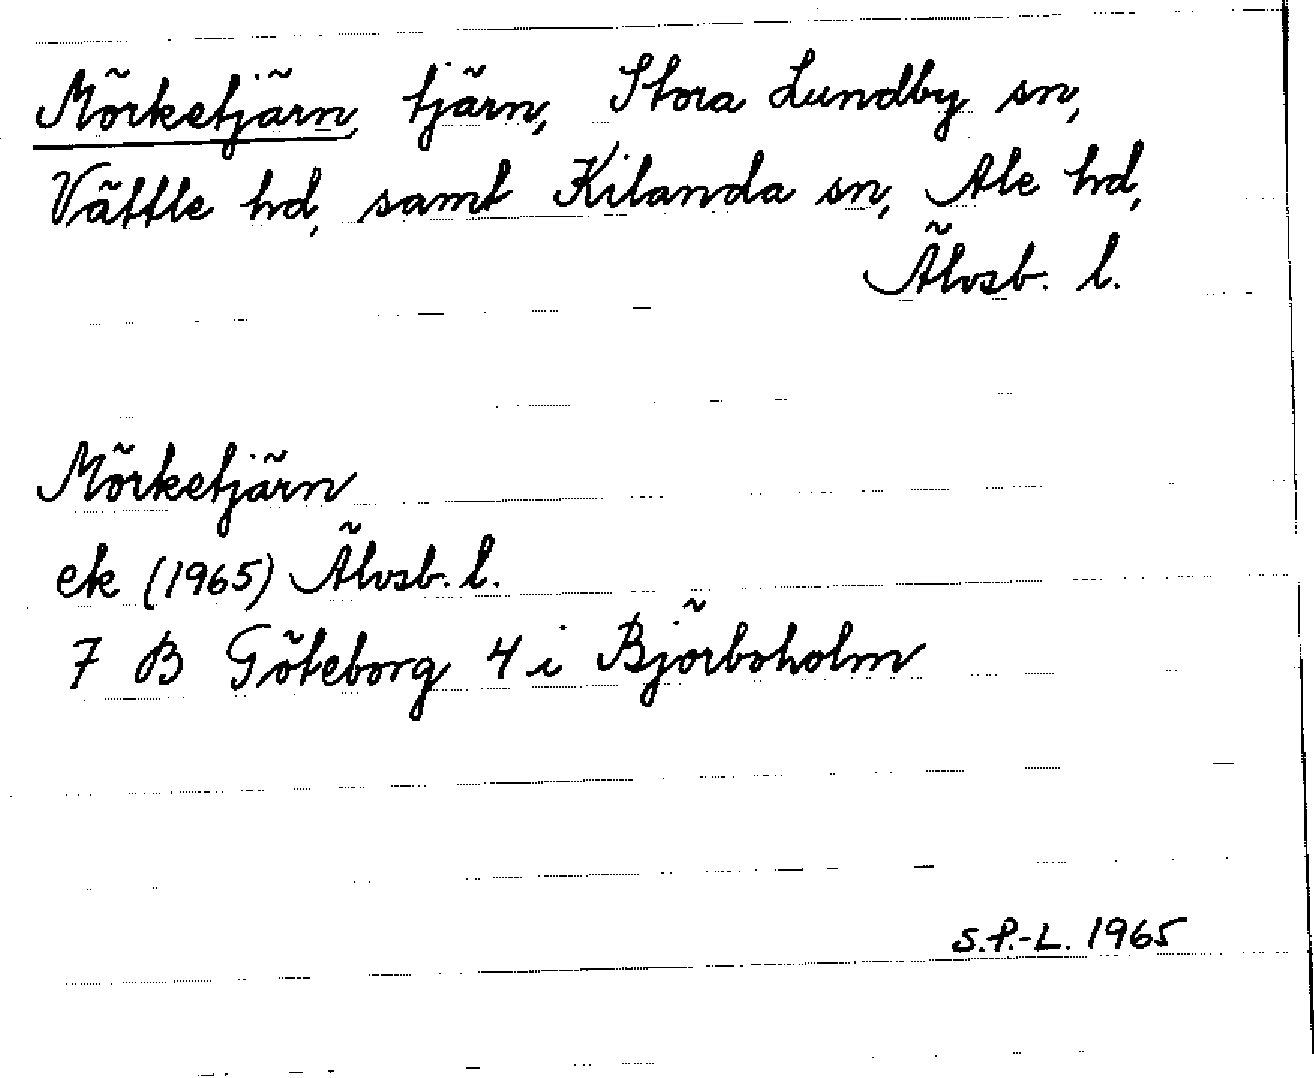 Mörketjärn, tjärn, Stora Lundby sn,
Vättle hd, samt Kilanda sn, Ale hd,
Älvsb. l.
Mörketjärn
ek (1965) Älvsb. l.
7 B Göteborg 4 i Björboholm
S.P.-L. 1965